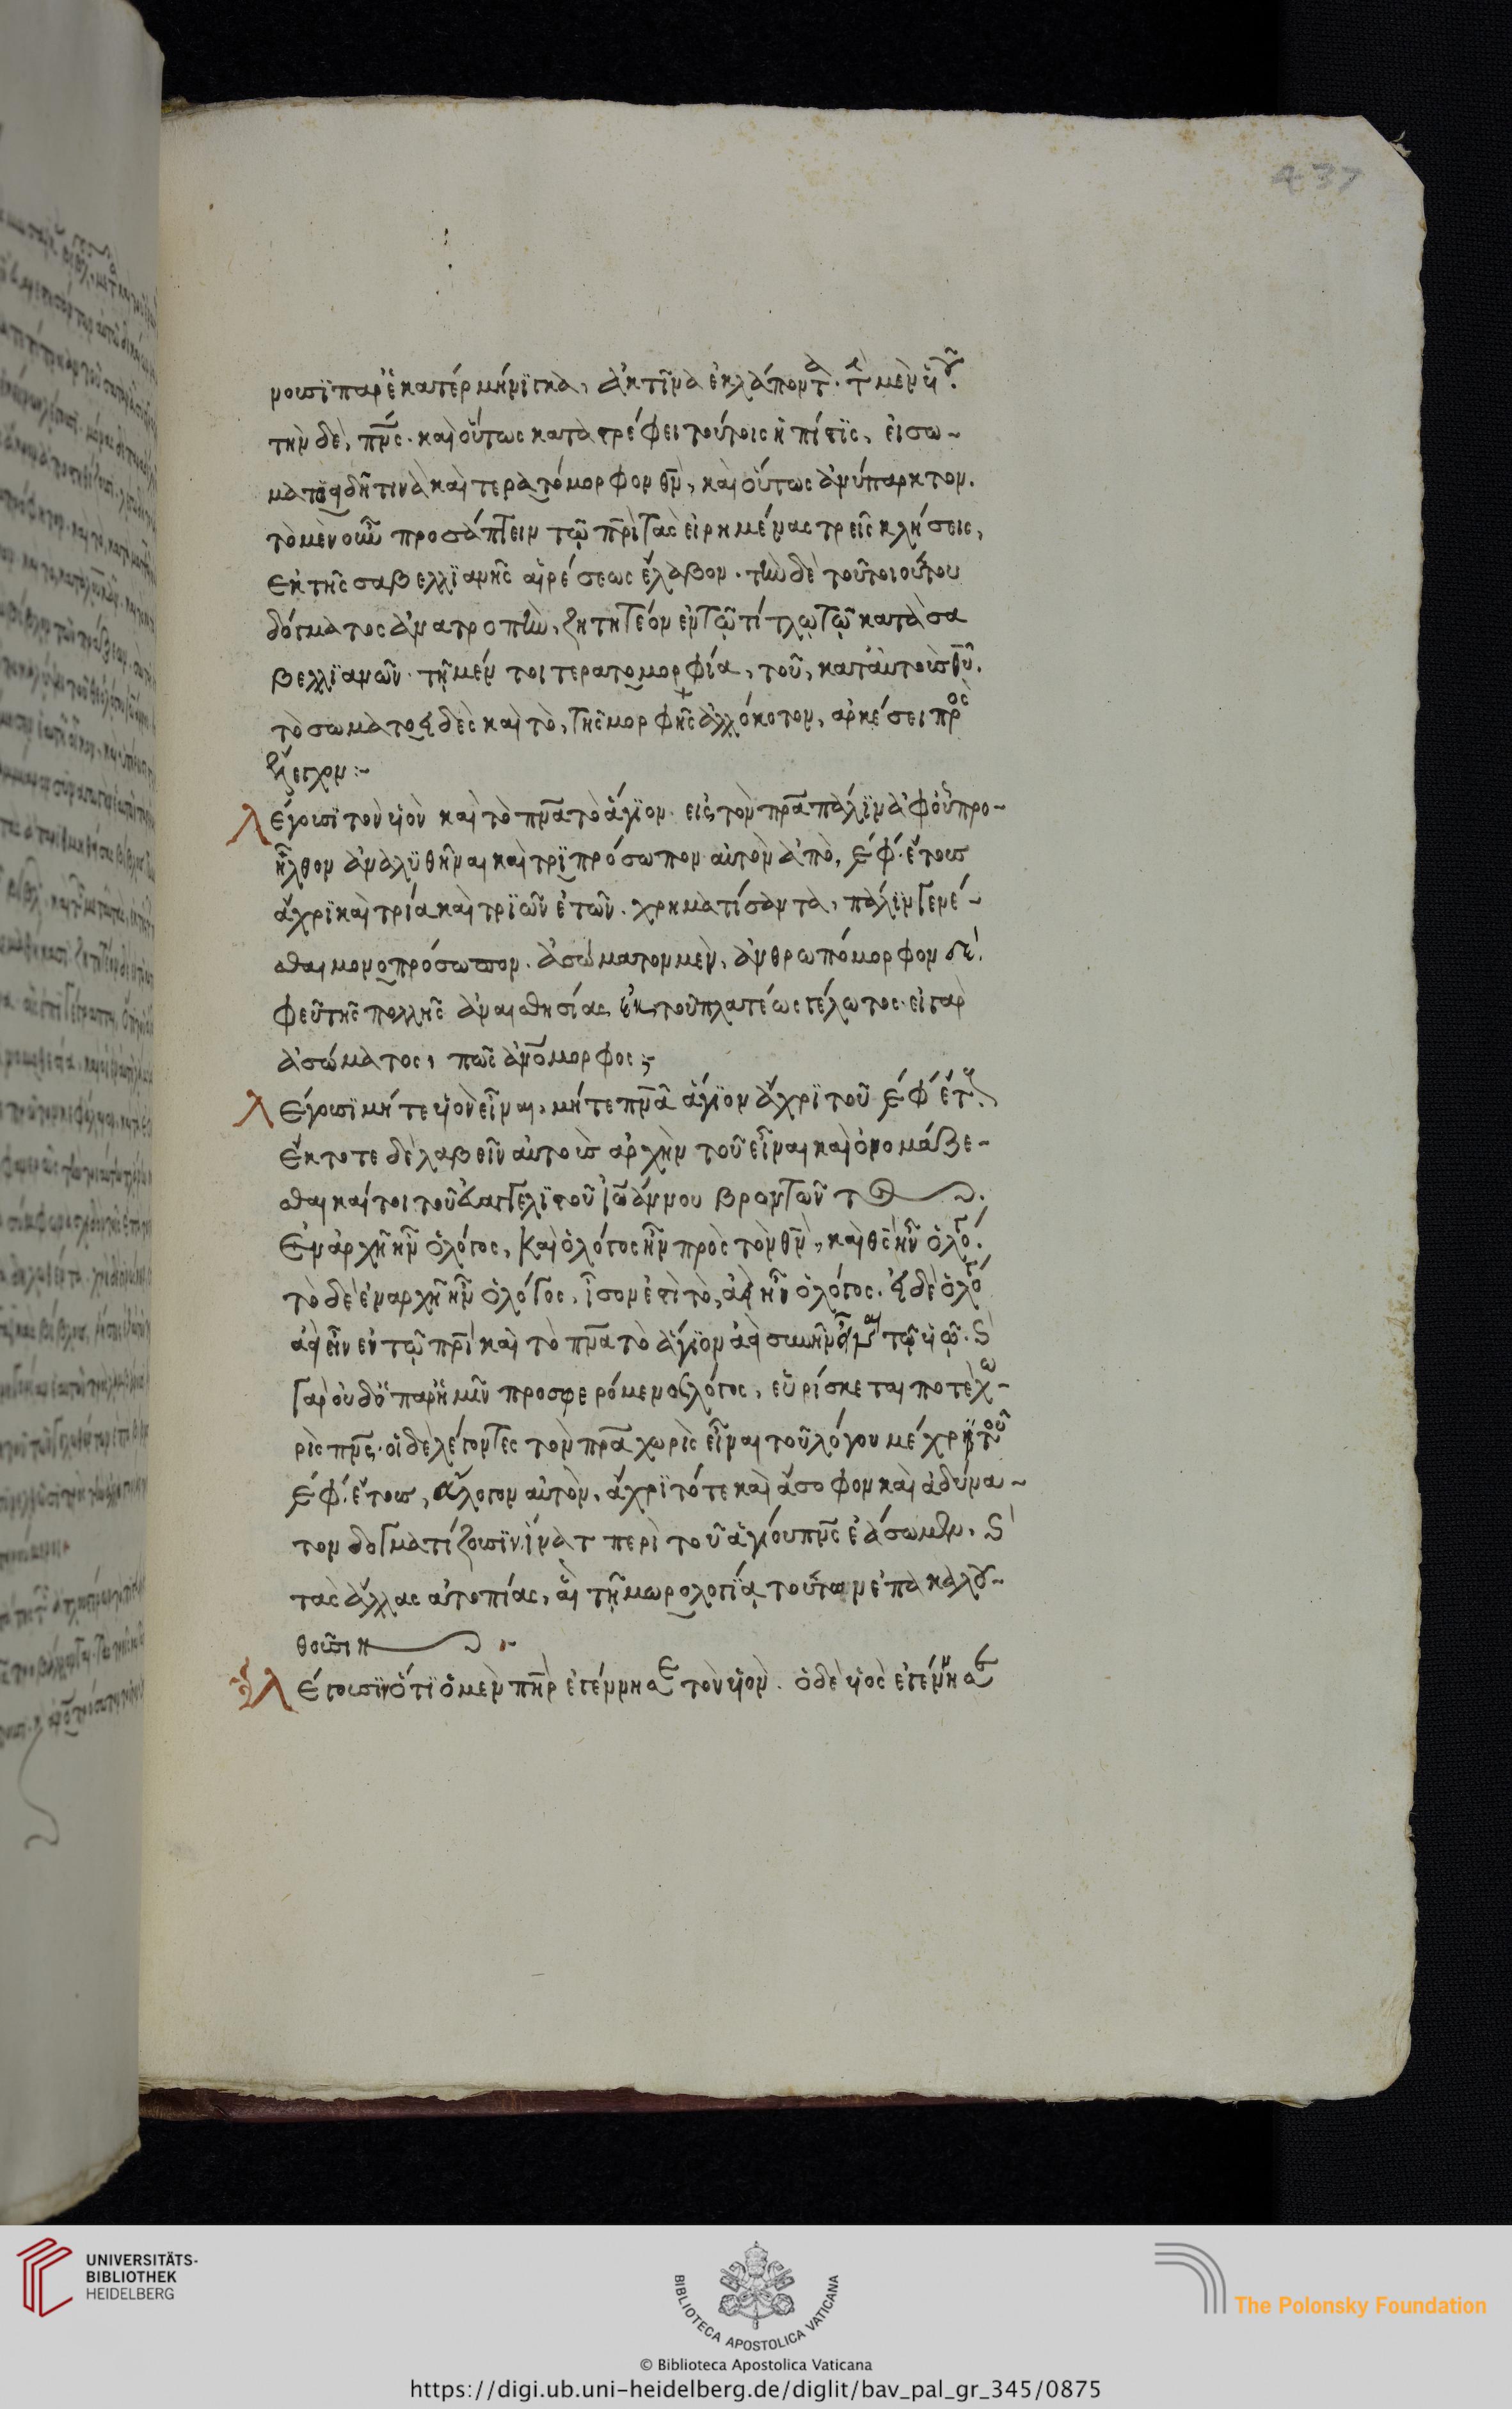 νουσϊ παρ' ἑκατέρ μήνϊγκα, ἀκτῖνα
την δὲ, πν̅ς. καὶ οὕτως καταστρέφει τούτοις ἡ πίστϊς, εἰσω-
ματώδη τινὰ καὶ τερατόμορφον θν̅, καὶ οὕτως ἀνύπαρκτον.
τὸ μὲν οὖν προσάπτειν τῶ πρ̅ὶ τὰς εἰρημένας τρεῖς κλήσεις,
Εκ τῆς σαβελλϊανῆς αἱρέσεως ἔλαβον. τὴν δὲ τοῦ τοιούτου
δόγματος ἀνατροπὴν, ζητητέον ἐν τῶ τίτλω τῶ κατὰ σα
βελλϊανῶν. τῆ μέν τοι τερατομορφία, τοῦ, κατ' αὐτοὺς θῡ.
τὸ σωματοειδὲς καὶ τὸ, τῆς μορφῆς ἀλλόκοτον, ἀρκέσει πρὸς
ἔλεγχον :-
Λέγουσϊ τὸν υἱὸν καὶ τὸ πν̅α τὸ ἅγϊον. εἰς τὸν πρ̅α πάλϊν ἀφ' οὗ προ-
ῆλθον ἀναλϋθῆναι καὶ τρϊπρόσωπον αὐτὸν ἀπὸ, ͵ε φ'. ἔτους
ἄχρϊ καὶ τρία καὶ τρϊῶν ἐτῶν. χρηματίσαντα, πάλϊν γενέ-
σθαι μονοπρόσωπον. ἀσώματον μὲν, ἀνθρωπόμορφον δέ.
φεῦ τῆς πολλῆς ἀναισθησίας, ἐκ τοῦ πλατέως γέλωτος. εἰ γὰρ
ἀσώματος, πῶς ἀν̅όμορφος ;-
Λέγουσϊ μήτε υἱὸν εἶναι, μήτε πν̅α ἅγϊον ἄχρϊ τοῦ ͵ε φ' ἔτους
Ἔκτοτε δὲ λαβεῖν αὐτοὺς ἀρχὴν τοῦ εἶναι καὶ ὀνομάζε-
σθαι καί τοι τοῦ εὐαγγελϊστοῦ ἰω̅άννου βροντῶν τ
Εν ἀρχῆ ἦν ὁ λόγος, Καὶ ὁ λόγος ἦν πρὸς τὸν θν̅, καὶ θς̅ ἦν ὁ λόγο.
τὸ δὲ ἐν ἀρχῆ ἦν ὁ λόγος, ἶσον ἐστὶ τὸ, ἀεὶ ἦν ὁ λόγος. εἰ δὲ ὁ λόγο
ἀεὶ ἦν ἐν τῶ πρ̅ὶ καὶ τὸ πν̅α τὸ ἅγϊον ἀεὶ συνῆν τῶ υἱῶ. ϛ
γὰρ οὐδ' ὁ παρ' ἡμῖν προσφερόμενος λόγος, εὑρίσκεται ποτὲ χω-
ρὶς πν̅ς. οἱ δὲ λέγοντες τὸν πρ̅α χωρὶς εἶναι τοῦ λόγου μέχρϊ τοῦ
͵ε φ'. ἔτους, ἄλογον αὐτὸν, ἄχρϊ τότε καὶ ἄσοφον καὶ ἀδύνα-
τον δογματίζουσϊν ἵνα τ περὶ τοῦ ἁγίου πν̅ς ἐάσωμεν. ϛ
τὰς ἄλλας ἀτοπίας, αἳ τῆ μωρολογϊα τούτων ἐπακολου-
θοῦσιν
Λέγουσϊν ὅτϊ ὁ μὲν πη̅ρ ἐγέννησε τὸν υἱὸν. ὁ δὲ υἱὸς ἐγέννησε
437
UNIVERSITÄTS-
BIBLIOTHEK
HEIDELBERG
BIBLIOTECA APOSTOLICA VATICANA
The Polonsky Foundation
© Biblioteca Apostolica Vaticana
https://digi.ub.uni-heidelberg.de/diglit/bav_pal_gr_345/0875